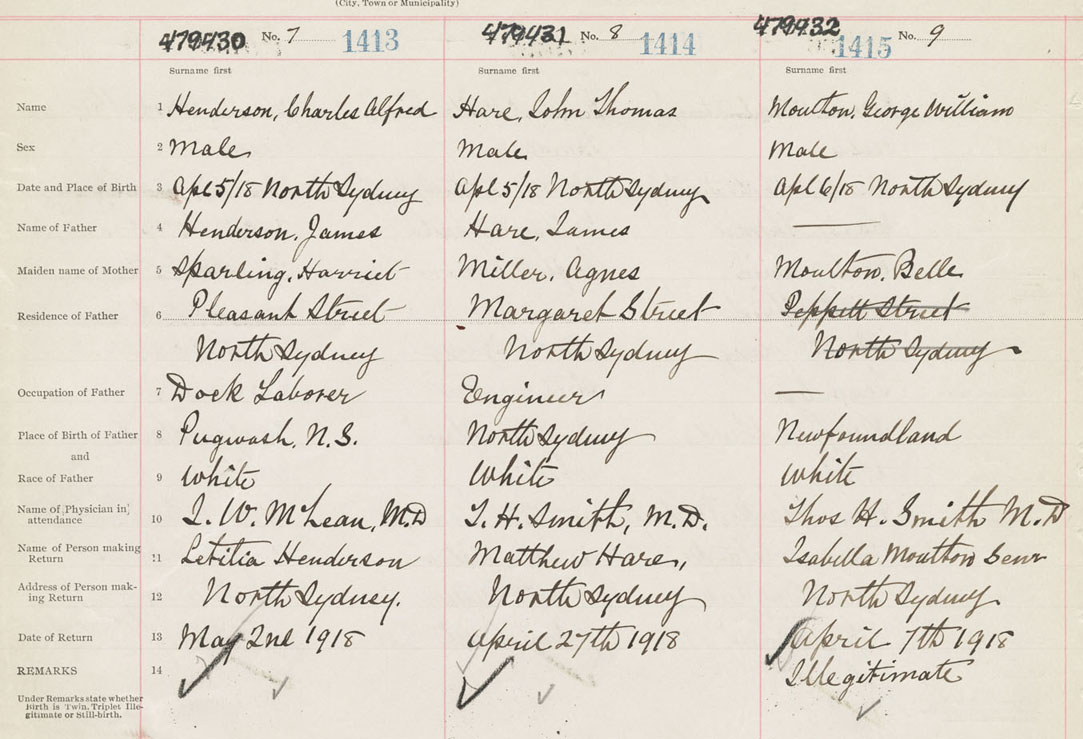 (City, Town or Municipality)
479430 No. 7 1413 479431 No. 8 1414 479432 1415 No. 9
Surname first Surname first Surname first
Name 1 Henderson, Charles Alfred Hare, John Thomas Moulton, George William
Sex 2 Male Male Male
Date and Place of Birth 3 Apl 5/18 North Sydney Apl 5/18 North Sydney Apl 6/18 North Sydney
Name of Father 4 Henderson, James Hare, James —
Maiden name of Mother 5 Sparling, Harriet Miller, Agnes Moulton, Belle
Residence of Father 6 Pleasant Street Margaret Street Peppett Street
North Sydney North Sydney North Sydney
Occupation of Father 7 Dock Laborer Engineer —
Place of Birth of Father 8 Pugwash, N.S. North Sydney Newfoundland
and
Race of Father 9 White White White
Name of Physician in
attendance 10 L. W. McLean, M.D T. H. Smith, M.D. Thos H. Smith M.D
Name of Person making
Return 11 Letitia Henderson Matthew Hare, Isabella Moulton Senr
Address of Person mak-
ing Return 12 North Sydney. North Sydney North Sydney
Date of Return 13 May 2nd 1918 April 27th 1918 April 7th 1918
REMARKS 14 Illegitimate
Under Remarks state whether
Birth is Twin, Triplet Ille-
gitimate or Still-birth.